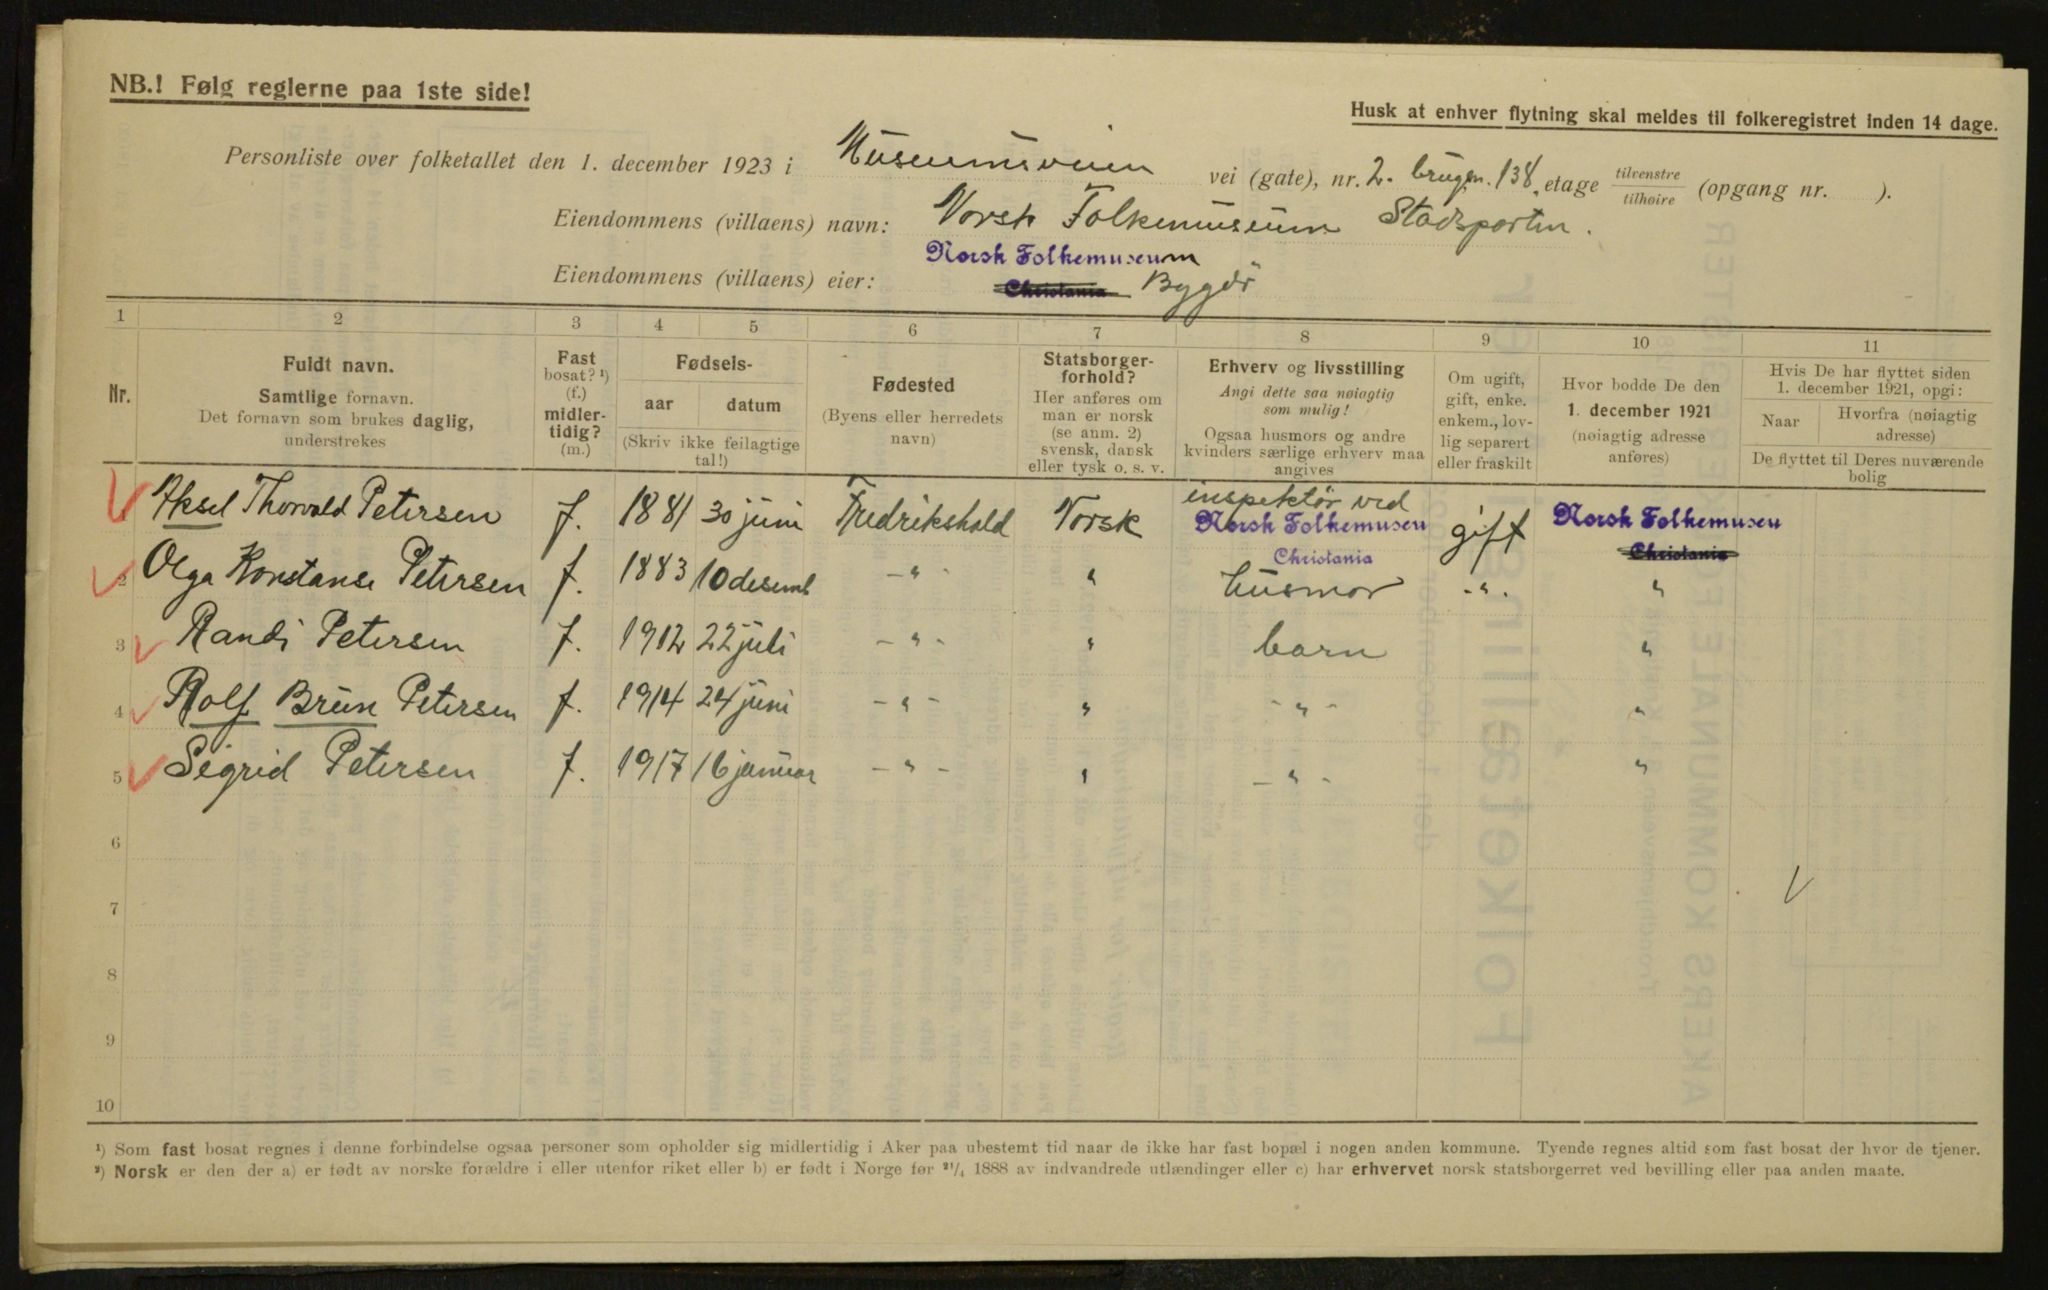 NB.! Følg reglerne paa 1ste side!
Husk at enhver flytning skal meldes til folkeregistret inden 14 dage.
Personliste over folketallet den 1. december 1923 i Museumsveien vei (gate), nr. 2. brugsn. 138. etage tilvenstre / tilhøire (opgang nr. ).
Eiendommens (villaens) navn: Norsk Folkemuseum Stadsporten.
Eiendommens (villaens) eier: Norsk Folkemuseum
Christania Bygdö
1 2 3 4 5 6 7 8 9 10 11
Nr.
Fuldt navn.
Samtlige fornavn.
Det fornavn som brukes daglig,
understrekes
Fast
bosat? ¹)
(f.)
midler-
tidig?
(m.)
Fødsels-
aar datum
(Skriv ikke feilagtige
tal!)
Fødested
(Byens eller herredets
navn)
Statsborger-
forhold?
Her anføres om
man er norsk
(se anm. 2)
svensk, dansk
eller tysk o. s. v.
Erhverv og livsstilling
Angi dette saa nøiagtig
som mulig!
Ogsaa husmors og andre
kvinders særlige erhverv maa
angives
Om ugift,
gift, enke.
enkem., lov-
lig separert
eller fraskilt
Hvor bodde De den
1. december 1921
(nøiagtig adresse
anføres)
Hvis De har flyttet siden
1. december 1921, opgi:
Naar Hvorfra (nøiagtig
adresse)
De flyttet til Deres nuværende
bolig
Aksel Thorvald Petersen f. 1881 30 juni Fredrikshald Norsk inspektör ved Norsk Folkemuseu Christania gift Norsk Folkemuseu Christania
2 Olga Konstanse Petersen f. 1883 10 desemb - " - " husmor - " - "
3 Randi Petersen f. 1912 22 juli - " - " barn "
4 Rolf Brun Petersen f. 1914 24 juni - " - " - " - "
5 Sigrid Petersen f. 1917 16 januar - " - " - " - "
6
7
8
9
10
¹) Som fast bosat regnes i denne forbindelse ogsaa personer som opholder sig midlertidig i Aker paa ubestemt tid naar de ikke har fast bopæl i nogen anden kommune. Tyende regnes altid som fast bosat der hvor de tjener.
²) Norsk er den der a) er født av norske forældre i eller utenfor riket eller b) er født i Norge før ²¹/₄ 1888 av indvandrede utlændinger eller c) har erhvervet norsk statsborgerret ved bevilling eller paa anden maate.